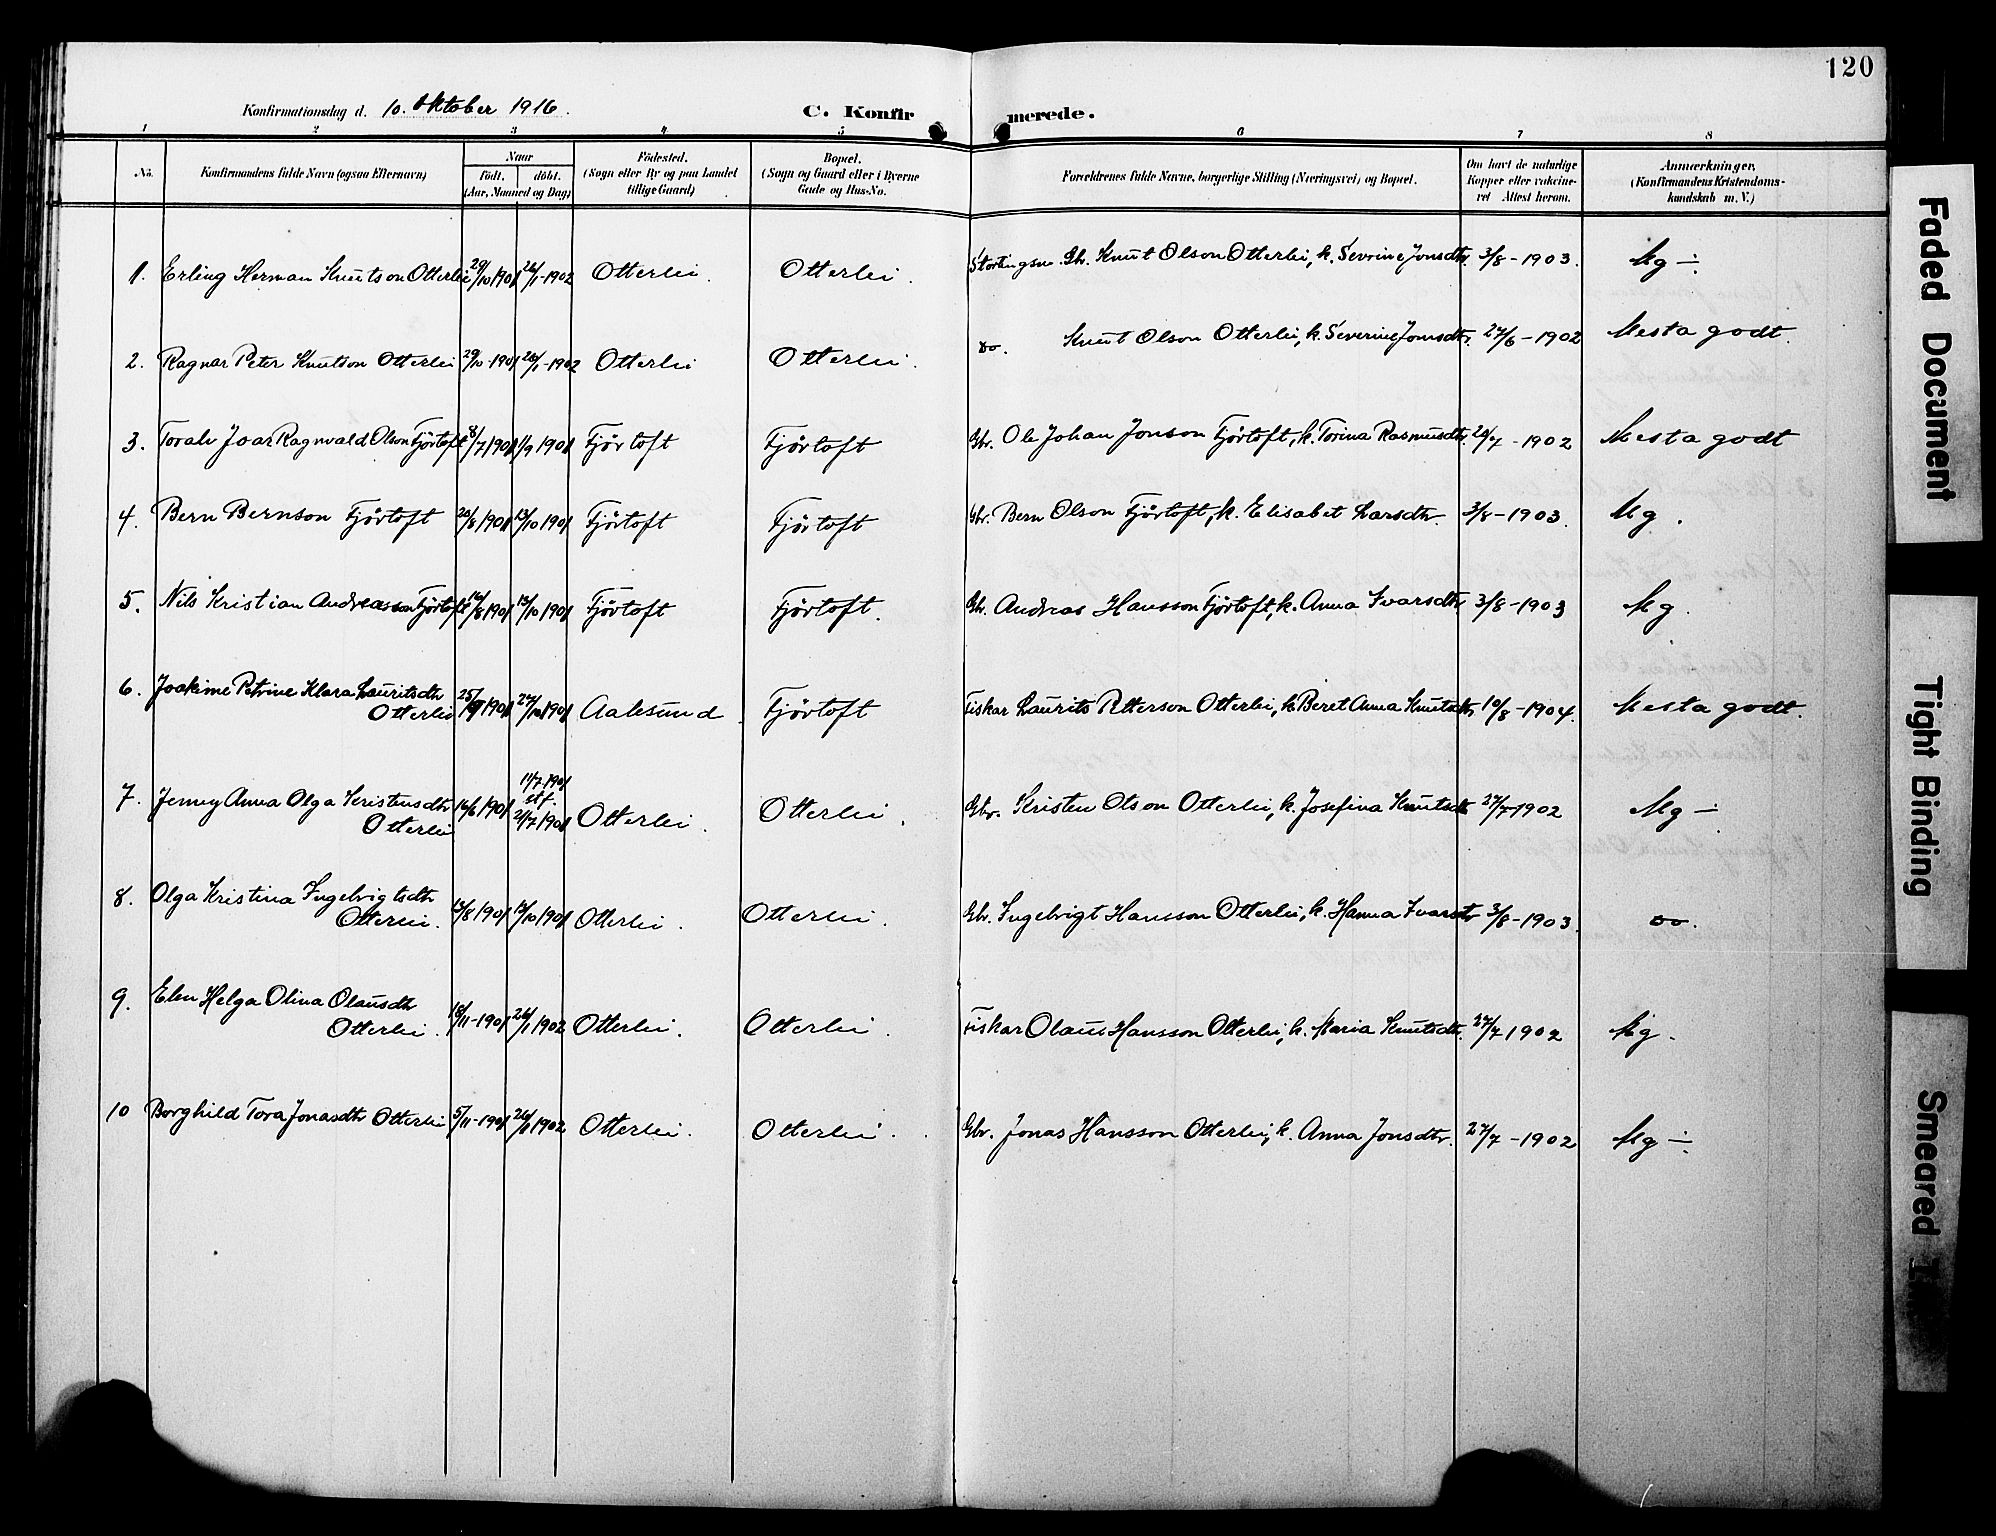 120
Konfirmationsdag d. 10. Oktober 1916.
C. Konfirmerede.
1 2 3 4 5 6 7 8
No.
Konfirmandens fulde Navn (ogsaa Efternavn)
Naar
født, døbt.
(Aar, Maaned og Dag)
Fødested.
(Sogn eller By og paa Landet
tillige Gaard)
Bopæl.
(Sogn og Gaard eller i Byerne
Gade og Hus-No.
Forældrenes fulde Navne, borgerlige Stilling (Næringsvei) og Bopæl.
Om havt de naturlige
Kopper eller vakcine-
ret Attest herom.
Anmærkninger,
(Konfirmandens Kristendoms-
kundskab m. V.)
1. Erling Herman Knutson Otterlei 29/10 1901 26/1-1902 Otterlei. Otterlei. Stortingsm. Gbr. Knut Olson Otterlei, k. Severine Jonsdtr. 3/8-1903. Mg ÷
2. Ragnar Peter Knutson Otterlei 29/10-1901 26/1-1902 Otterlei Otterlei. do. Knut Olson Otterlei, k. Severine Jonsdtr. 27/6-1902 Mesta godt.
3. Toralv Joar Ragnvald Olson Fjørtoft 8/7 1901 1/9 1901 Fjørtoft Fjørtoft Gbr. Ole Johan Jonson Fjørtoft, k. Torina Rasmusdtr. 26/7-1902 Mesta godt
4. Bern Bernson Fjørtoft 20/8 1901 13/10 1901 Fjørtoft Fjørtoft Gbr. Bern Olson Fjørtoft, k. Elisabet Larsdtr. 3/8-1903. Mg.
5. Nils Kristian Andreasson Fjørtoft 16/8 1901 13/10 1901 Fjørtoft Fjørtoft. Gbr. Andreas Hansson Fjørtoft, k. Anna Ivarsdtr. 3/8-1903 Mg.
6. Joakime Petrine Klara Lauritsdtr
Otterlei 1901 27/10 1901 Aalesund Fjørtoft Fiskar Laurits Petterson Otterlei, k. Beret Anna Knutsdtr 10/8-1904. Mesta godt.
7. Jenny Anna Olga Kristensdtr
Otterlei 16/6 1901 11/7 1901
stf.
21/7 1901 Otterlei. Otterlei. Gbr. Kristen Olson Otterlei, k. Josefina Knutsdtr 27/7 1902 Mg ÷
8. Olga Kristina Ingebrigtsdtr
Otterlei. 1901 13/10 1901 Otterlei. Otterlei. Gbr. Ingebrigt Hansson Otterlei, k. Hanna Ivarsdtr 3/8-1903. do.
9. Elen Helga Olina Olausdtr
Otterlei. 18/11-1901 26/1 1902 Otterlei. Otterlei. Fiskar Olaus Hansson Otterlei, k. Maria Knutsdtr. 27/7 1902 Mg.
10 Borghild Tora Jonasdtr Otterlei 5/11-1901 26/1 1902 Otterlei. Otterlei. Gbr. Jonas Hansson Otterlei, k. Anna Jonsdtr. 27/7-1902 Mg ÷
Faded Document
Tight Binding
Smeared